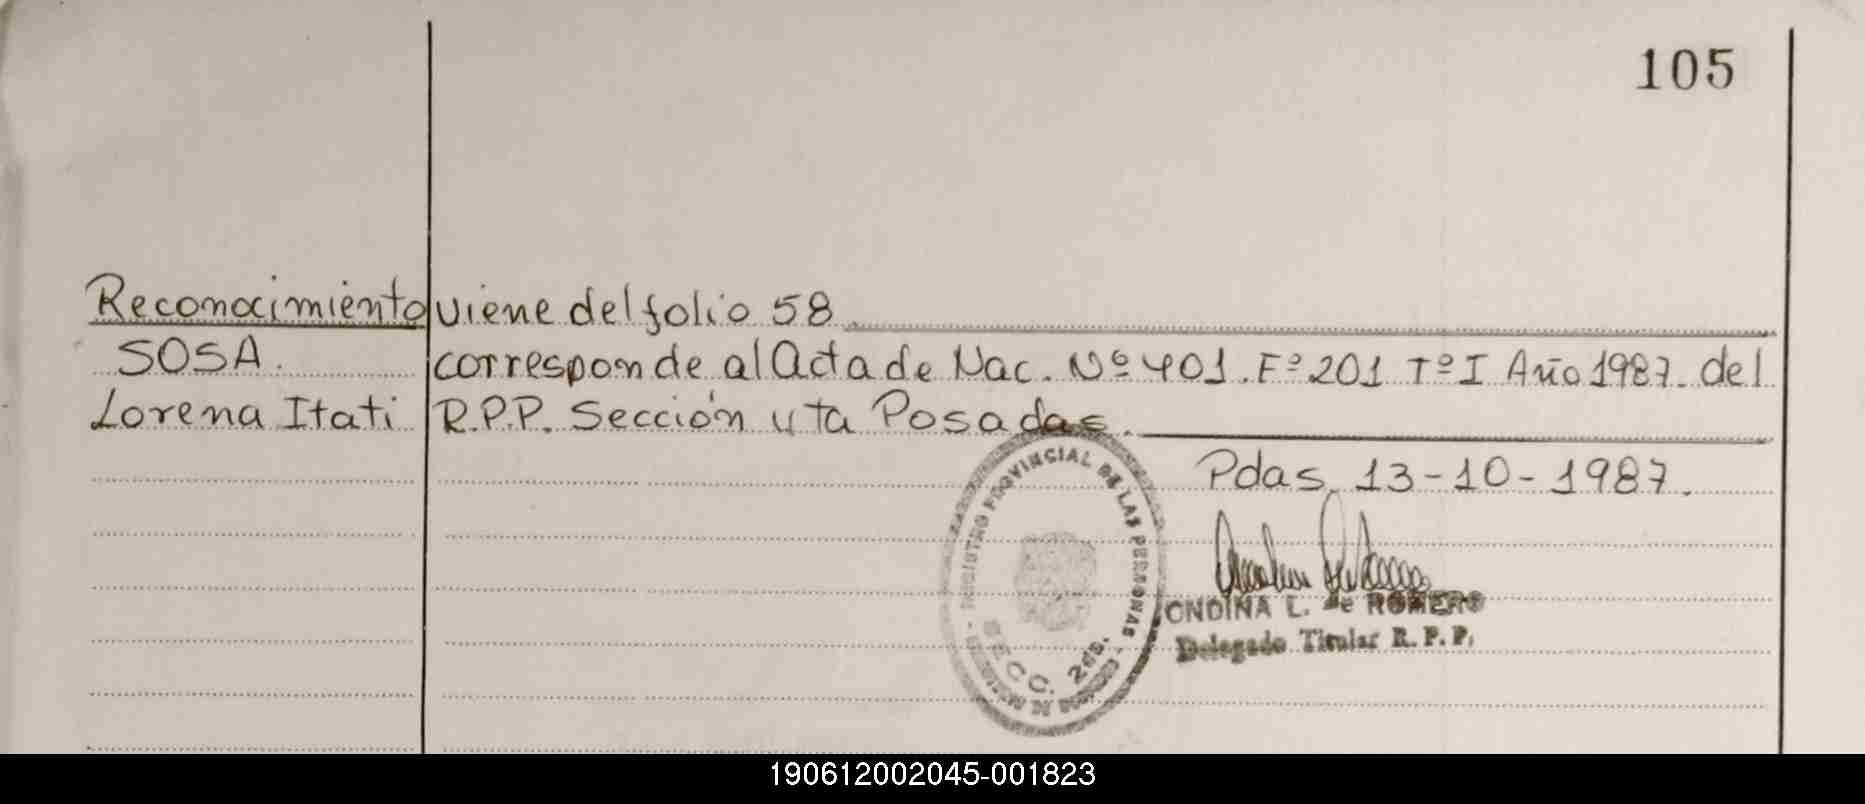 105
Reconocimiento viene del folio 58
SOSA. corresponde al Acta de Nac. Nº 401. Fº 201 Tº I Año 1987. del
Lorena Itati R.P.P. Sección 4ta Posadas.
Pdas, 13-10-1987.
REGISTRO PROVINCIAL DE LAS PERSONAS
SECC. 2da.
ONDINA L. de ROMERO
Delegado Titular R. P. P.
190612002045-001823